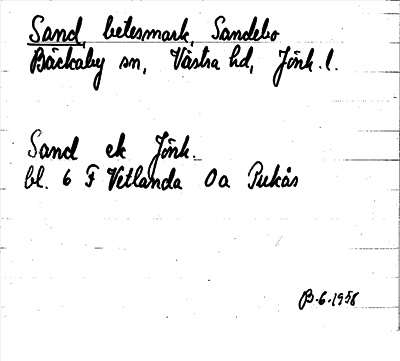 Sand, betesmark, Sandebo
Bäckaby sn, Västra hd, Jönk. l.
Sand ek Jönk.
bl. 6 F Vetlanda 0a Pukås
6.1958